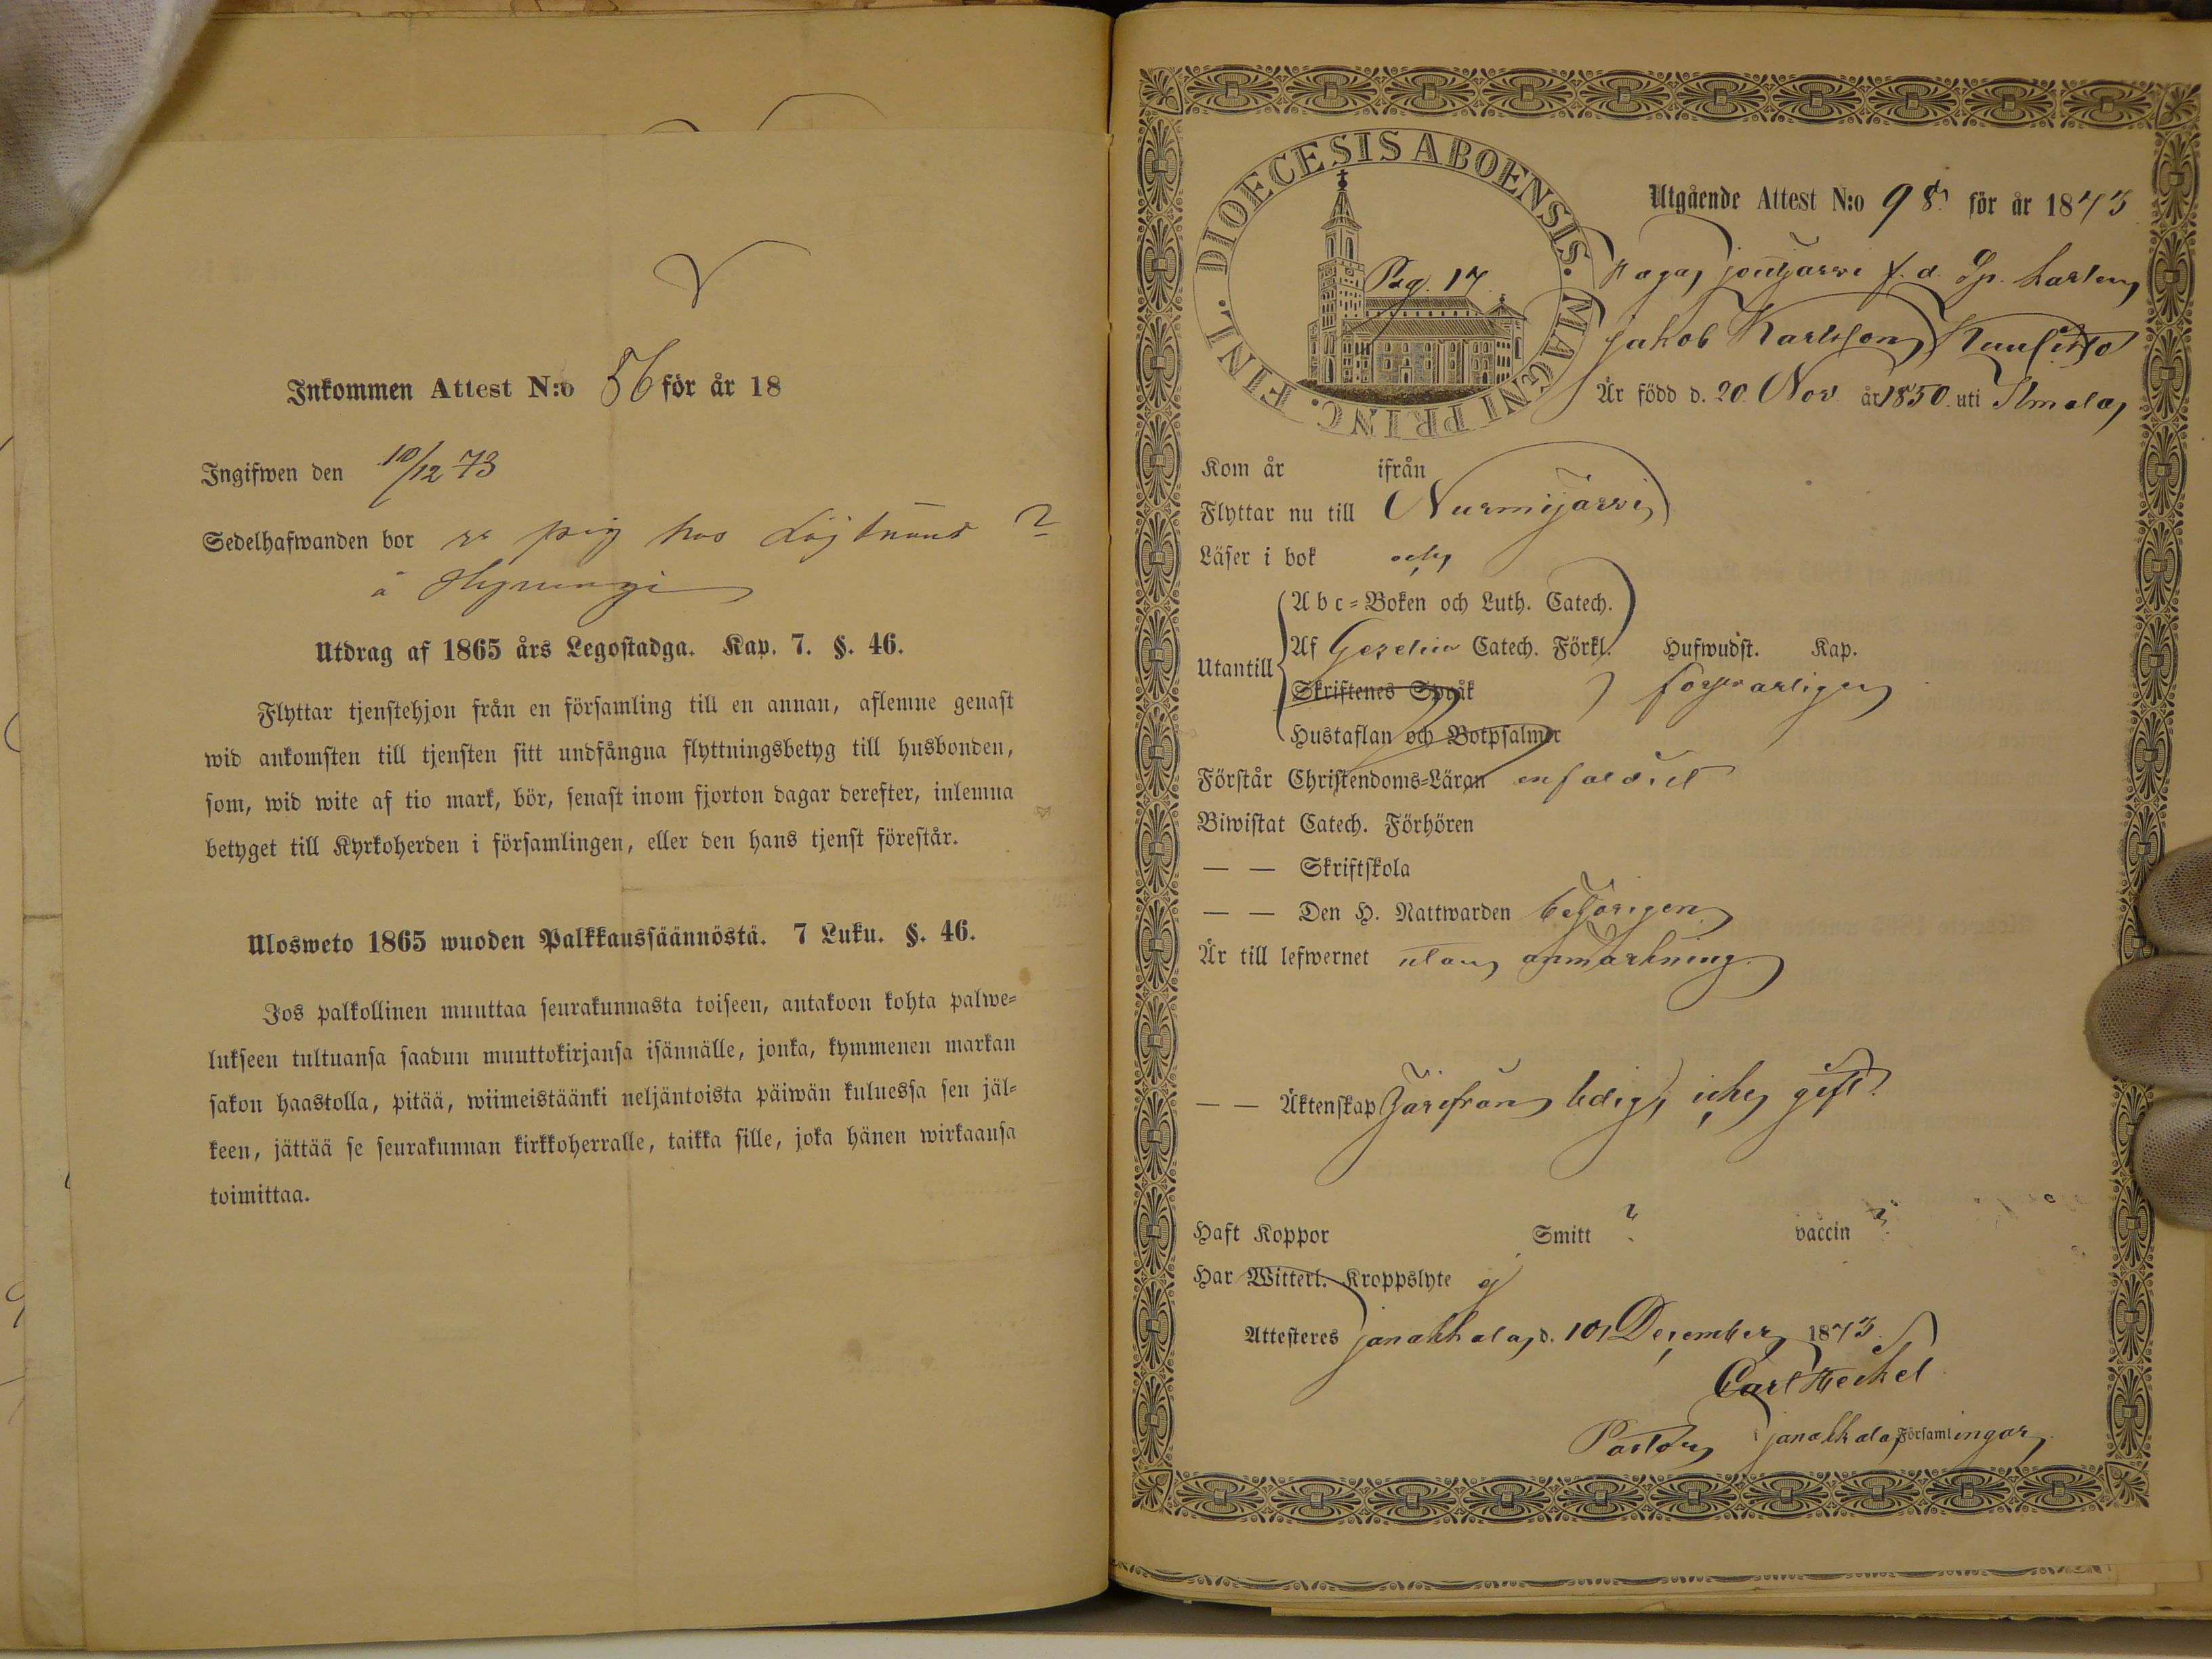 Inkommen Attest N:o 56 för år 18
Ingifwen den 10/12 73
Sedelhafwanden bor pig hos ?
å
Utdrag af 1865 års Legostadga. Kap. 7. §. 46.
Flyttar tjenstehjon från en församling till en annan, aflemne genast
wid ankomsten till tjensten sitt undfångna flyttningsbetyg till husbonden,
som, wid wite af tio mark, bör, senast inom fjorton dagar derefter, inlemna
betyget till Kyrkoherden i församlingen, eller den hans tjenst förestår.
Ulosweto 1865 wuoden Palkkaussäännöstä. 7 Luku. §. 46.
Jos palkollinen muuttaa seurakunnasta toiseen, antakoon kohta palwe=
lukseen tultuansa saadun muuttokirjansa isännälle, jonka, kymmenen markan
sakon haastolla, pitää, wiimeistäänki neljäntoista päiwän kuluessa sen jäl=
keen, jättää se seurakunnan kirkkoherralle, taikka sille, joka hänen wirkaansa
toimittaa.
DIOECESIS ABOENSIS. MAGNI PRINC. FINL.
Pag. 17.
Utgående Attest N:o 98. för år 1873
f. d.
Jakob Karlsson Kuusisto
Är född d. 20 Nov. år 1850. uti
Kom år ifrån
Flyttar nu till Nurmijärvi
Läser i bok
Utantill
Abc=Boken och Luth. Catech.
Af Gezelii Catech. Förkl. Hufwudst. Kap.
Skriftenes Språk försvarligen
Hustaflan och Botpsalmer
Förstår Christendoms=Läran enfaldigt
Biwistat Catech. Förhören
— — Skriftskola
— — Den H. Nattwarden behörigen
Är till lefwernet utan anmärkning.
— — Äktenskap härifrån ledig, icke gift.
Haft Koppor Smitt ? vaccin ?
Har Witterl. Kroppslyte ej
Attesteres Janakkala, d. 10 December 1873.
Carl Heckel
Pastor i Janakkala Församlingar